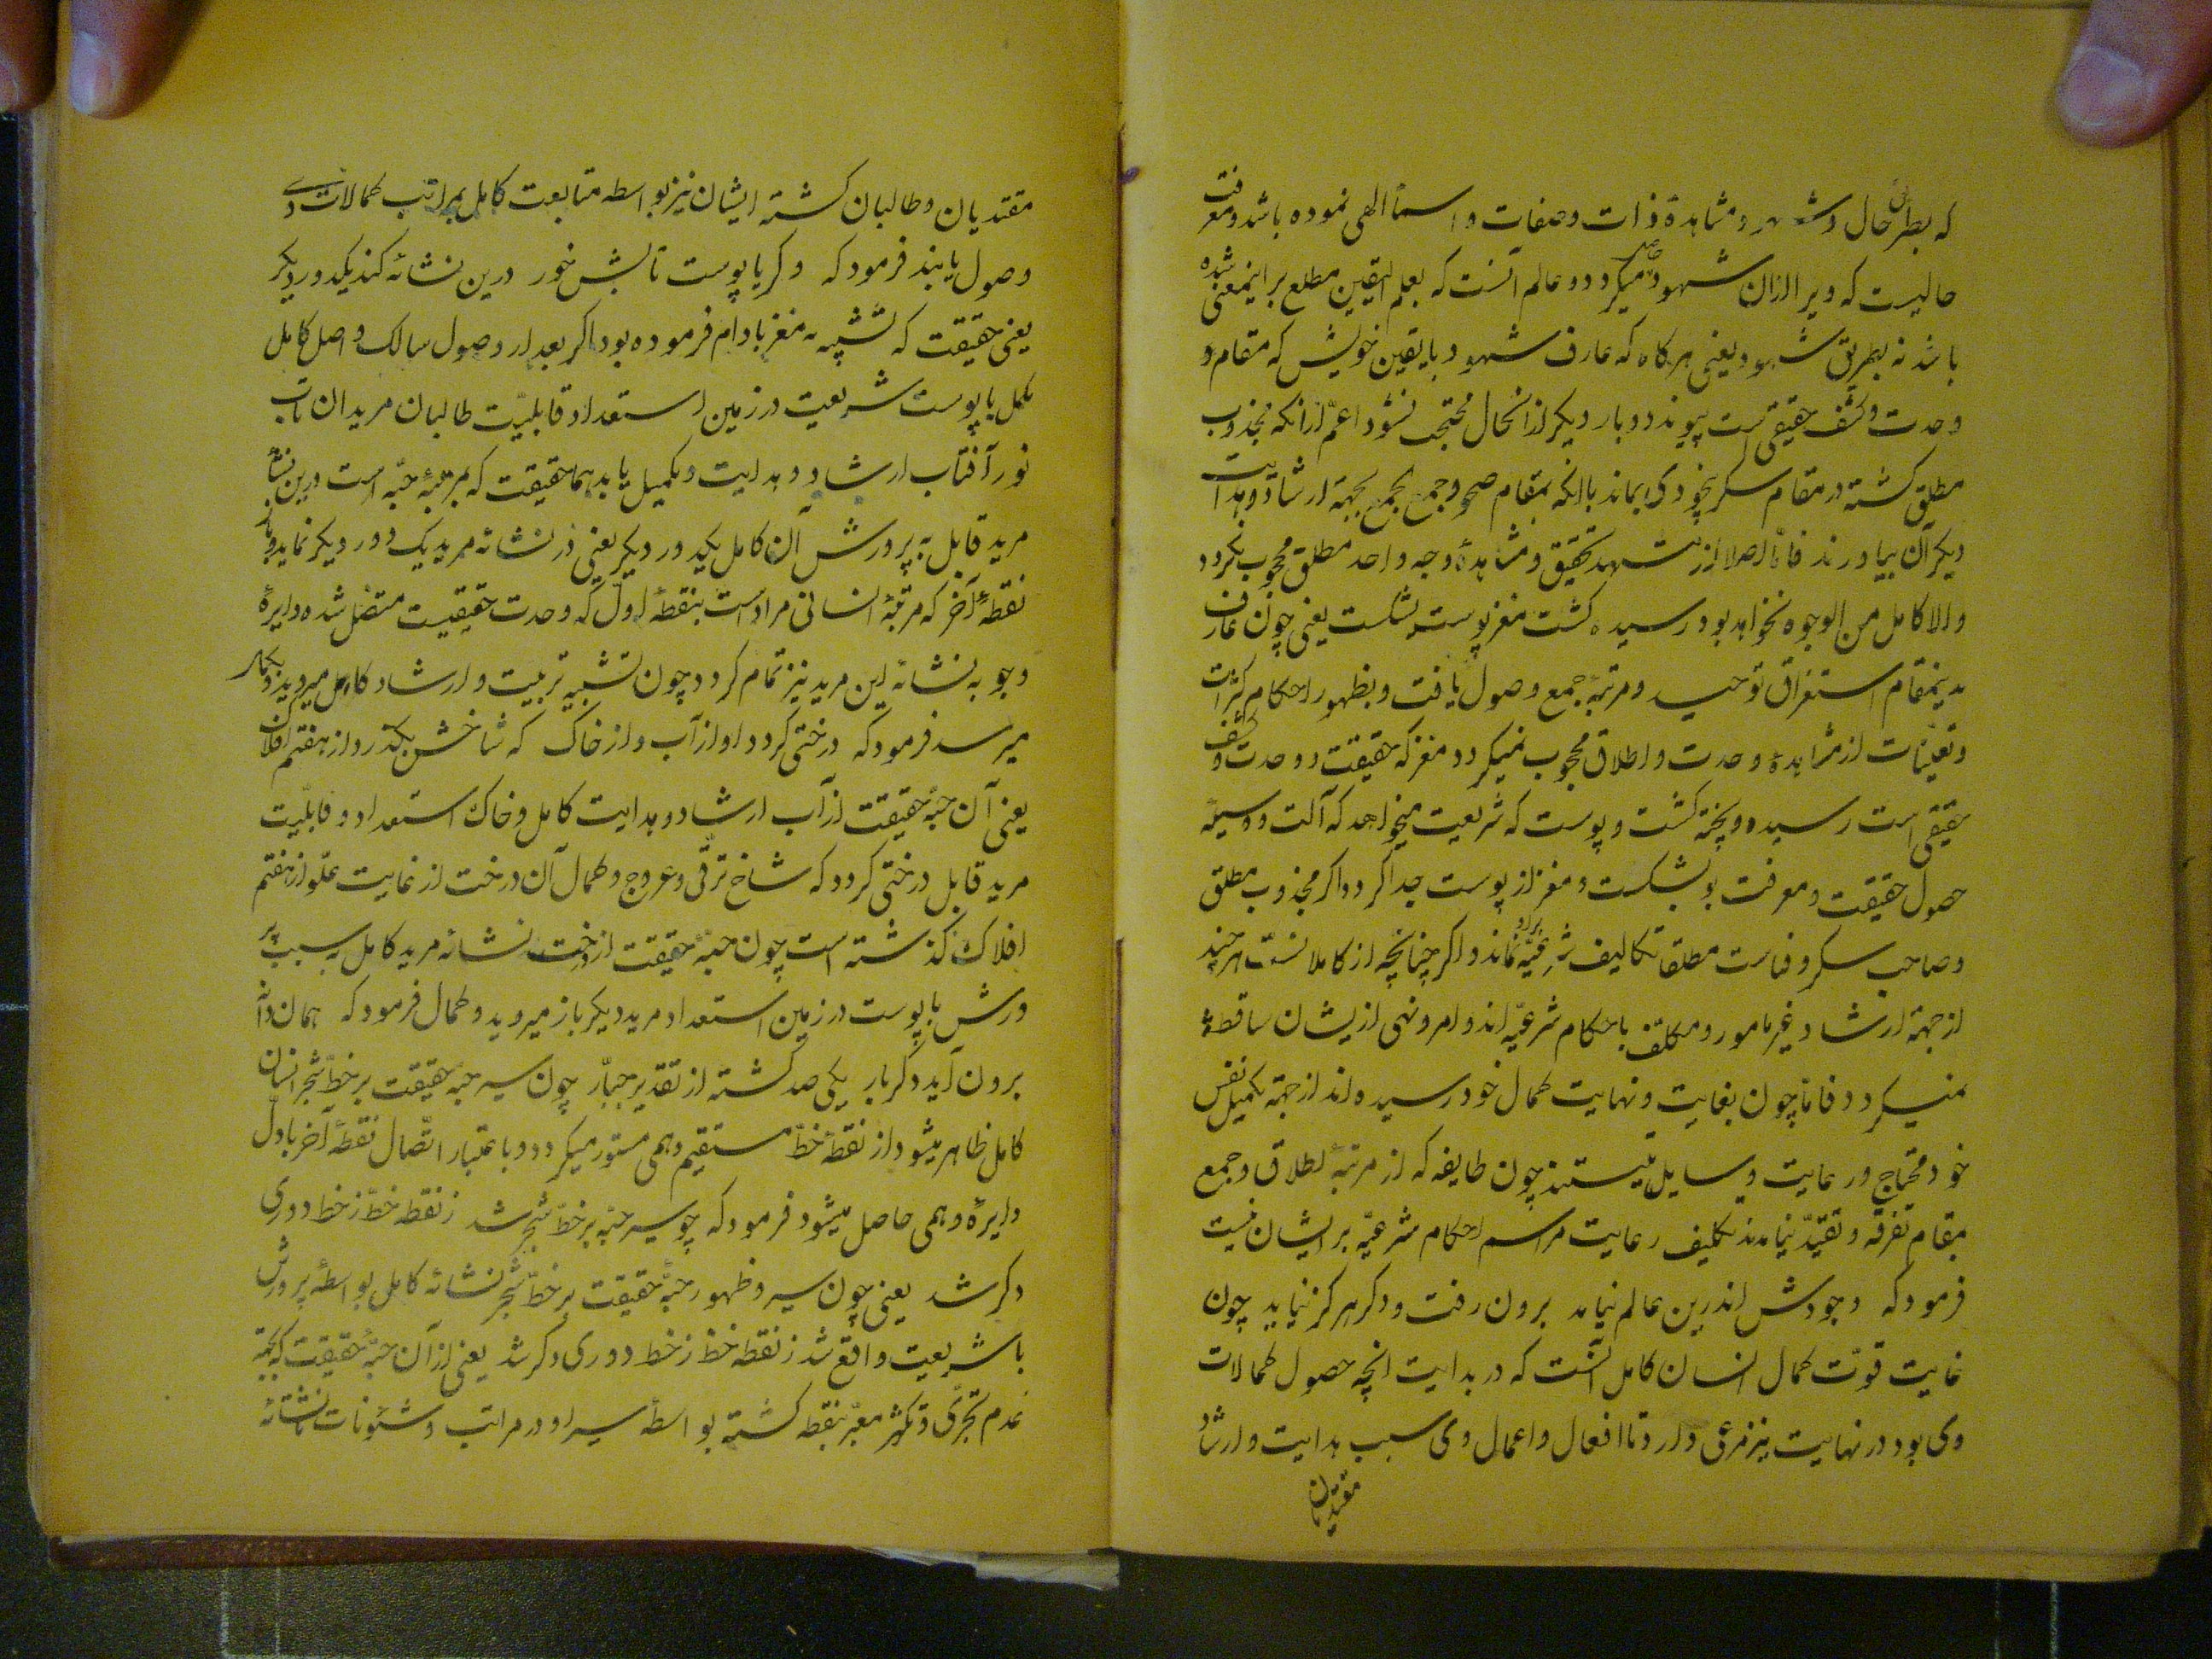 که بطریق حال و شهود و مشاهدة ذات و صفات و اسمآ الهی نموده باشد و معرفت
حالیست که ویرا ازان شهود حاصل میگردد و عالم آنست که بعلم الیقین مطلع بر اینمعنی شده
باشد نه بطریق شهود یعنی هرگاه که عارف شهود با یقین خویش که مقام
وحدت و کشف حقیقی است پیوندد و بار دیگر از انحال محتجب نشود اعمّ از انکه مجذوب
مطلق گشته در مقام سکر بیخودی بماند یا انکه بمقام صحو و جمع الجمع بجهة ارشاد و هدایت
دیگران بیاورند فامّا اصلا از شهد تحقیق و مشاهدهٔ وجه واحد مطلق محجوب نگردد
والا کامل من الوجوه نخواهد بود رسیده گشت مغز پوست بشکست یعنی چون عارف
بدینمقام استغراق توحید و مرتبهٔ جمع وصول یافت و بظهور احکام کثرات
و تعیّنات از مشاهدهٔ وحدت و اطلاق محجوب نمیگردد مغز که حقیقت و وحدت و کشف
حقیقی است رسیده و پخته گشت و پوست که شریعت میخواهد که آلت و وسیلهٔ
حصول حقیقت و معرفت بود بشکست و مغز از پوست جدا گردد اگر مجذوب مطلق
و صاحب سکر و فناست مطلقا تکالیف شرعیّه بر او نماند و اگر چنانچه از کاملانست هر چند
از جهة ارشاد غیر مامور و مکلّف باحکام شرعیّه اند و امر و نهی ازیشان ساقط
نمیگردد فامّا چون بغایت و نهایت کمال خود رسیده اند از جهة تکمیل نفس
خود محتاج و رعایت وسایل نیستند چون طایفه که از مرتبهٔ اطلاق و جمع
بمقام تفرقه و تقیّد نیامدند تکلیف رعایت مراسم احکام شرعیّه بر ایشان نیست
فرمود که وجودش اندرین عالم نیابد برون رفت و دگر هرگز نیاید چون
غایت قوّت کمال انسان کامل آنست که در بدایت انچه حصول کمالات
وی بود در نهایت نیز مرعی دارد تا افعال و اعمال وی سبب هدایت و ارشاد
مقتدیان
مقتدیان و طالبان گشته ایشان نیز بواسطه متابعت کامل بمراتب کمالات وی
وصول یابند فرمود که وگر با پوست تابش خور درین نشائه کند یکدور دیگر
یعنی حقیقت که تشبیه به مغز بادام فرموده بود اگر بعد از وصول سالک واصل کامل
مکمل با پوست شریعت در زمین استعداد قابلیّت طالبان مریدان تاب
نور آفتاب ارشاد و هدایت و تکمیل یابد هما حقیقت که بمرتبهٔ حبّه است درین نشأ
مرید قابل به پرورش آن کامل یکدور دیگر یعنی در نشائه مرید یک دور دیگر نماید و باز
نقطهٔ آخر که مرتبهٔ انسانی مراد است بنقطهٔ اوّل که وحدت حقیقیست متصّل شده دایرهٔ
وجو به نشائهٔ این مرید نیز تمام گردد چون تشبیه تربیت و ارشاد کامل میروید و بکمال
میرسد فرمود که درختی گردد او از آب و از خاک که شاخش بگذرد از هفتم افلاک
یعنی آن حبّهٔ حقیقت از آب ارشاد و هدایت کامل و خاک استعداد و قابلّیت
مرید قابل درختی گردد که شاخ ترقّی و عروج و کمال آن درخت از غایت علّو از هفتم
افلاک گذشته است چون حبّهٔ حقیقت از درخت نشائه مرید کامل به سبب پر
ورش با پوست در زمین استعداد مرید دیگر باز میروید و کمال فرمود که همان دانه
برون آید دگر بار یکی صد گشته از تقدیر جبّار چون سیر حبّهٔ حقیقت بر خطّ شجر انسان
کامل ظاهر میشود از نقطهٔ خطّ مستقیم وهمی مستور میگردد و باعتبار اتّصال نقطهٔ آخر باوّل
دایرهٔ وهمی حاصل میشود فرمود که چو سیر حبّه بر خطّ شجر شد ز نقطه خطّ ز خط دوری
دگر شد یعنی چون سیر و ظهور حبّهٔ حقیقت بر خطّ شجر نشائه کامل بواسطهٔ پرورش
با شریعت واقع شد ز نقطه خط ز خط دوری دگر شد یعنی از آن حبّهٔ حقیقت که بجهة
عدم تجزّی و تکثر معبّر بنقطه گشته بواسطه سیر او در مراتب و شئونات نشائهٔ